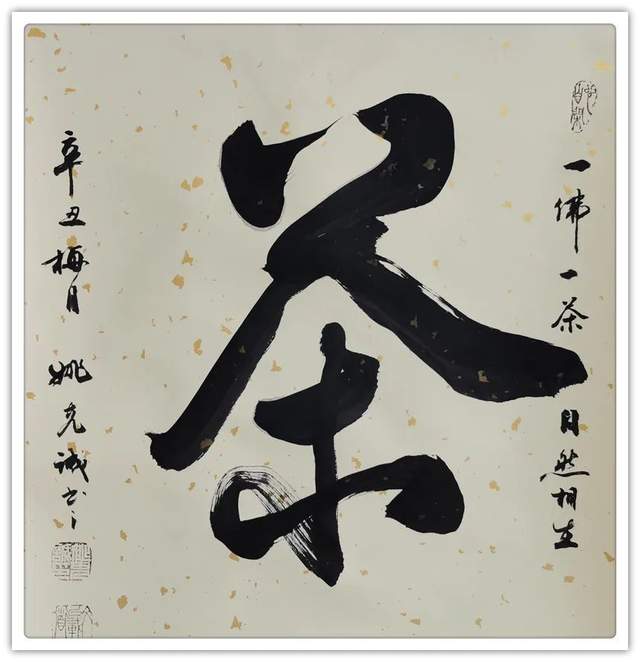 一佛一茶 自然相生
茶
辛丑梅月 姚克诚书